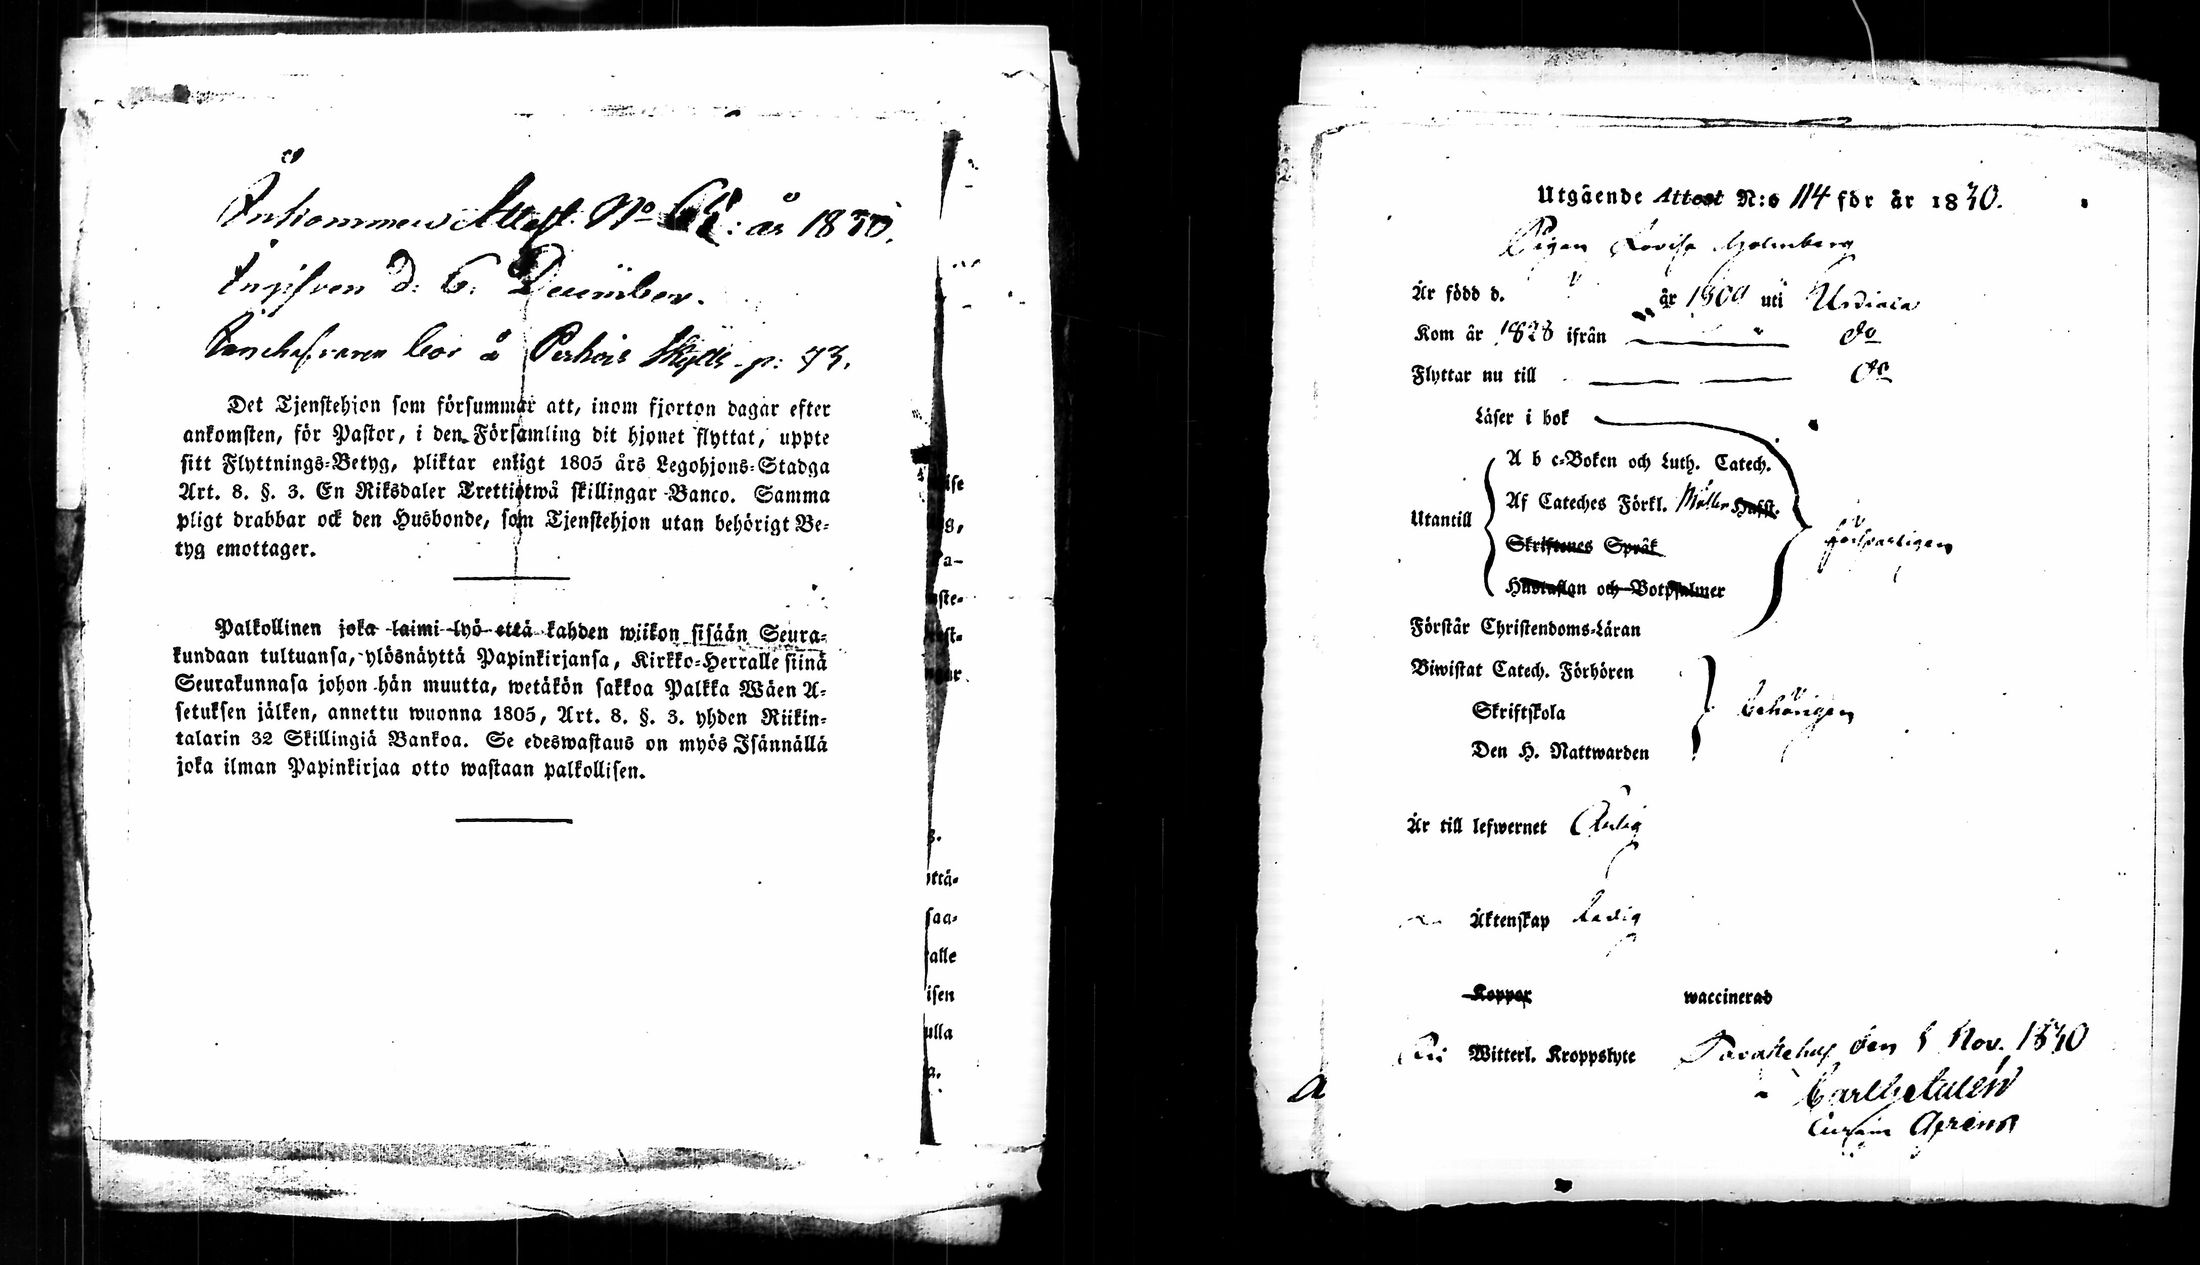 Ankommen Attest No 65: år 1830.
Ingifven d. 6. December.
bor å Perhois Skyttl. p: 73.
Det Tjenstehjon som försummar att, inom fjorton dagar efter
ankomsten, för Pastor, i den Församling dit hjonet flyttat, uppte
sitt Flyttnings-Betyg, pliktar enligt 1805 års Legohjons-Stadga
Art. 8. §. 3. En Riksdaler Trettiotwå skillingar Banco. Samma
pligt drabbar ock den Husbonde, som Tjenstehjon utan behörigt Be-
tyg emottager.
Palkollinen joka laimi lyö että kahden wiikon sisään Seura-
kundaan tultuansa, ylösnäyttä Papinkirjansa, Kirkko-Herralle siinä
Seurakunnasa johon hän muutta, wetäkön sakkoa Palkka Wäen A-
setuksen jälken, annettu wuonna 1805, Art. 8. §. 3. yhden Riikin-
talarin 32 Skillingiä Bankoa. Se edeswastaus on myös Isännällä
joka ilman Papinkirjaa otto wastaan palkollisen.
ttä-
saa-
alle
isen
ulla
a.
Utgående Attest N:o 114 för år 1830.
Pigan Lovisa Holmberg
Är född d. " " år 1809 uti Urdiala
Kom år 1828 ifrån " do
Flyttar nu till do
Läser i bok
Utantill
A b c-Boken och Luth. Catech.
Af Cateches Förkl. Möller
Skriftenes Språk
Hustaflan och Botpsalmer
försvarligen
Förstår Christendoms-Läran
Biwistat Catech. Förhören
Skriftskola
Den H. Nattwarden
behörigen
Är till lefwernet Ärlig
Äktenskap Ledig
Koppor waccinerad
Fri Witterl. Kroppslyte Tavastehus den 5 Nov. 1830
Carl